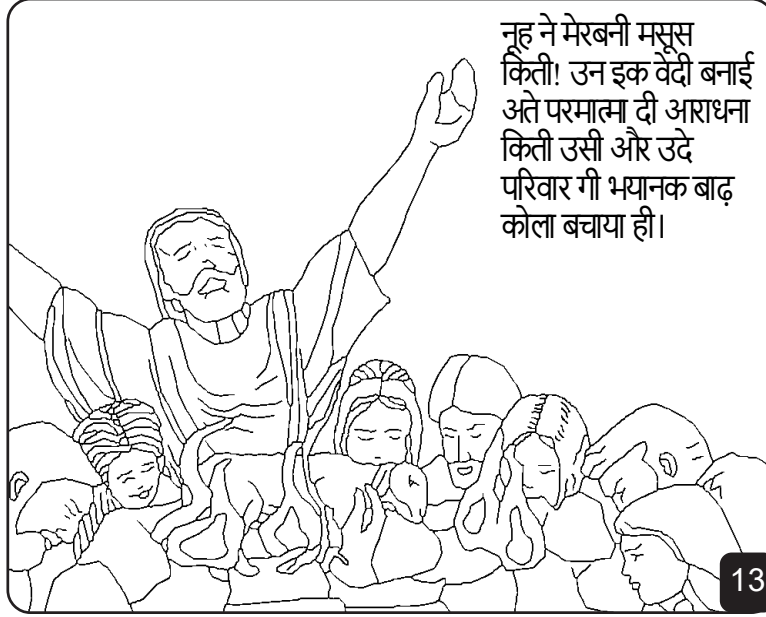 नूह ने मेरबनी मसूस
किती! उन इक वेदी बनाई
अते परमात्मा दी आराधना
किती उसी और उदे
परिवार गी भयानक बाढ़
कोला बचाया ही।
13